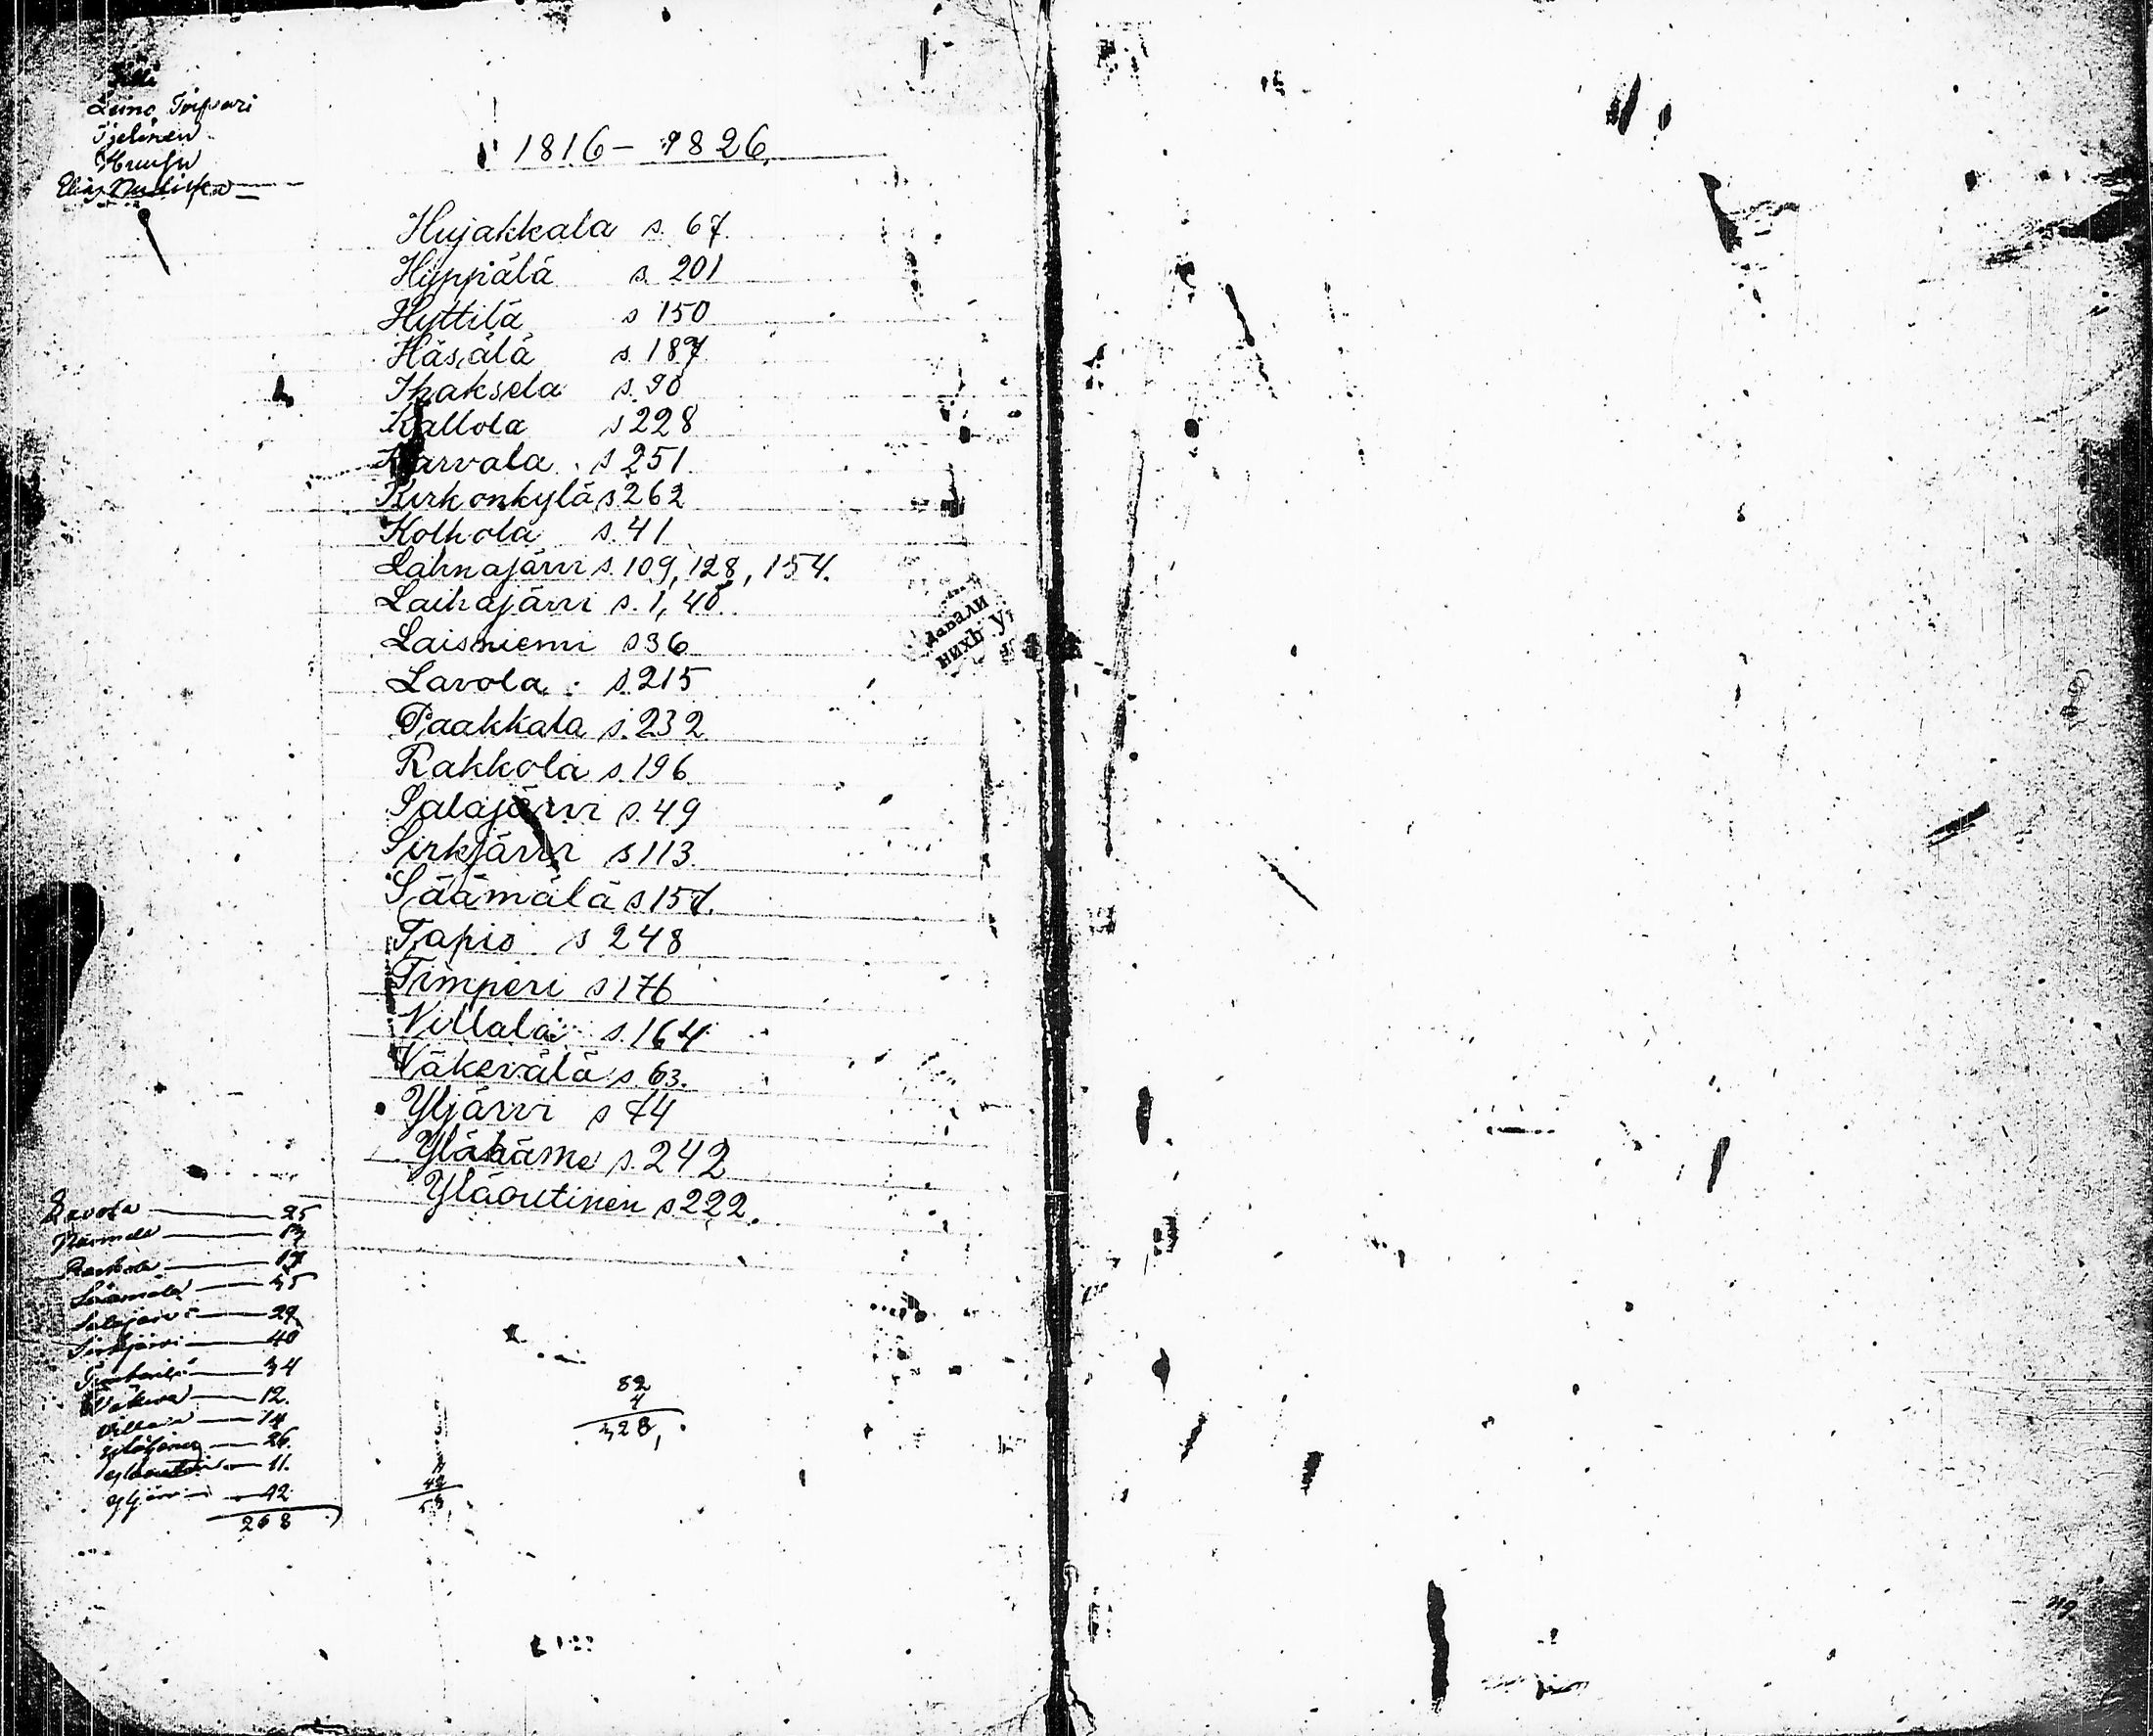 Leino
1816 – 1826
Hujakkala s. 67
Hyppälä s. 201
Hyttilä s 150
Häsälä s. 187
Ihaksela s. 90
Kallola s 228
Karvala s 251
Kirkonkylä s 262
Kolhola s. 41
Lahnajärvi s. 109, 128, 154.
Laihajärvi s. 1, 40.
Laisniemi s 36
Lavola s. 215
Paakkala s. 232
Rakkola s. 196
Salajärvi s. 49
Sirkjärvi s 113.
Säämälä s 157.
Tapio s 248
Timperi s 176
Villala s. 164
Väkevälä s. 63.
Yljärvi s 74
Ylähäme s. 242
Yläoutinen s 222.
давали
нихъ
Lavola 25
Säämälä 45
Salajärvi
Sirkjärvi 40
34
Väkevä 12.
14
26.
11.
Yljärvi 42
268
82
4
328,